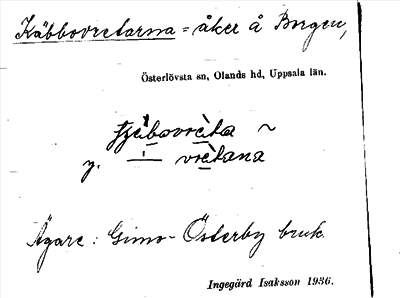 Käbbovretarna = åker å Borgen,
Österlövsta sn, Olands hd, Uppsala län.
vrèta ~
y. — vrètana
Ägare: Gimo-Österby bruk.
Ingegärd Isaksson 1936.